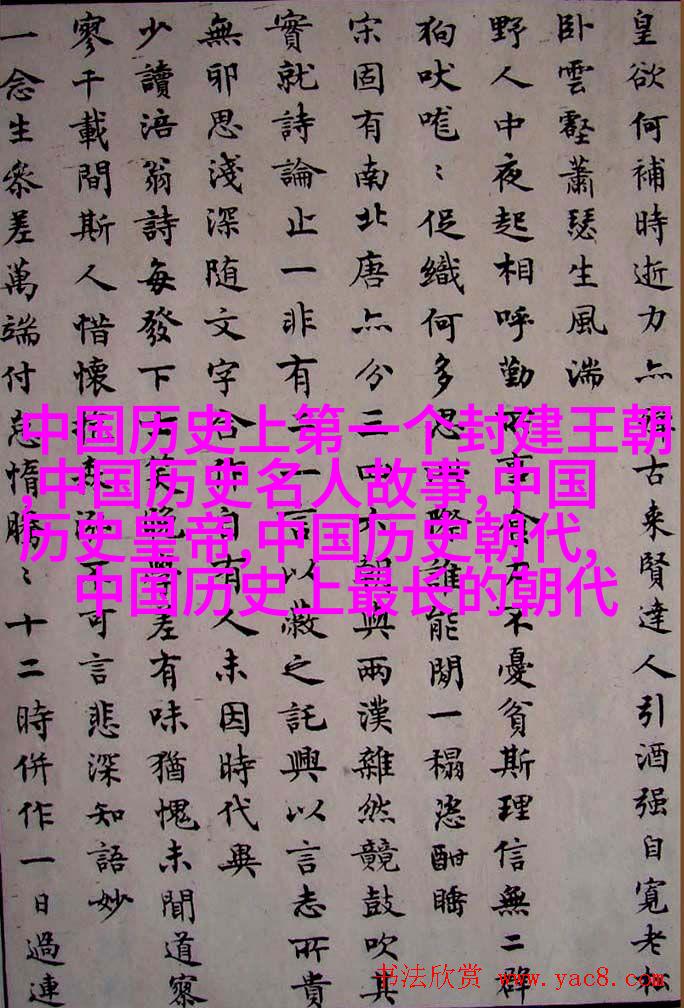 皇欲何補時逝力亦古来賢達人引酒强自寬老
卧雲壑蕭瑟生風湍
野人中夜起相呼勤事食力不憂貧斯理信無二群
狗吠〻促織何多思際誰能閉一榻恣酣睡
宋固有南北唐亦分三四六朝與兩漢雜然競鼓吹其
實就詩論止一非有二一言以蔽之託興以言志所貴
無邪思淺深随文字自有人未因時代異
少讀涪翁詩每發下士笑晚差有味猶愧未聞道寥
寥千載間斯人惜懷抱可言悲深知語妙
一念生參差萬端付怠惰騰〻十二時併作一日過連
中国历史上第一个封建王朝
,中国历史名人故事,中国
历史皇帝,中国历史朝代,
中国历史上最长的朝代
书法欣赏 www.yac8.com